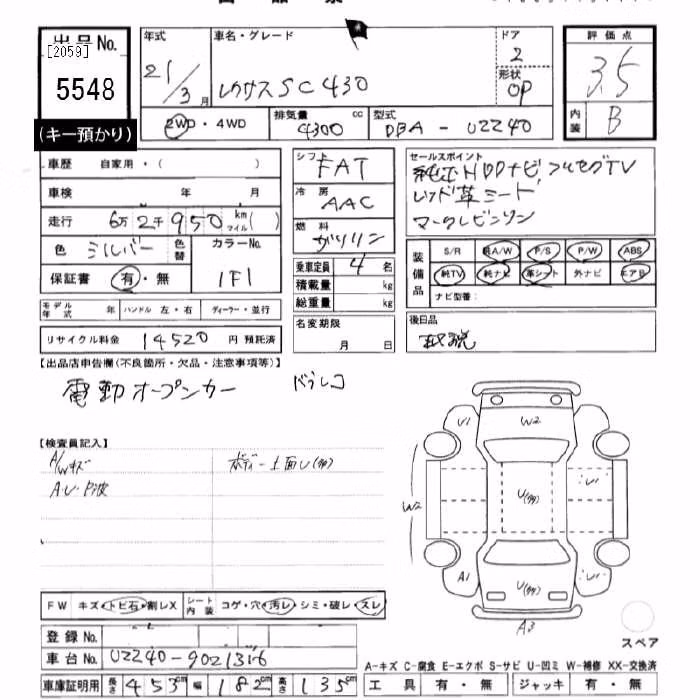 出品No.
[2059]
5548
(キー預かり)
年式 車名・グレード ドア 評価点
21/3月 レクサスSC430 2 3.5
形状 OP
内装 B
2WD・4WD 排気量 4300 cc 型式 DBA-UZZ40
車歴 自家用・( )
車検 年 月
走行 6万2千950km マイル( )
色 シルバー 色替 カラーNo. 1F1
保証書 有・無
モデル年式 年 ハンドル 左・右 ディーラー・並行
リサイクル料金 14520円 預託済
シフト FAT
冷房 AAC
燃料 ガソリン
乗車定員 4名
積載量 kg
総重量 kg
名変期限
月 日
セールスポイント
純正HDDナビ フルセグTV
レッド革シート
マークレビンソン
装備品 S/R 純A/W P/S P/W ABS
純TV 純ナビ 革シート 外ナビ エアB
ナビ型番:
後日品
取説
【出品店申告欄(不良箇所・欠品・注意事項等)】
電動オープンカー ドラレコ
【検査員記入】
A/Wキズ ボディー上面U(多)
A・U・P波
U1 W2
W2 U(多) U1
A1 U(多) U1
A3
スペア
FW キズ・トビ石・割レX シート内装 コゲ・穴・汚レ・シミ・破レ・スレ
登録No.
車台No. UZZ40-9021316
車庫証明用 長さ 453cm 幅 182cm 高さ 135cm
A-キズ C-腐食 E-エクボ S-サビ U-凹ミ W-補修 XX-交換済
工具 有・無 ジャッキ 有・無